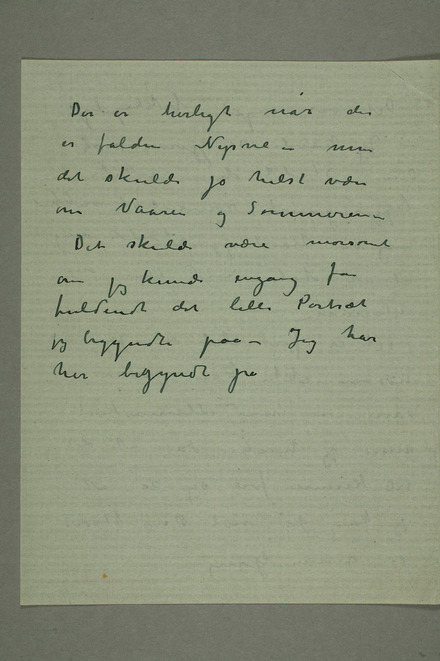 Der er herligt når der
er falden Nysne – men
det skulde jo helst være
om Vaaren og Sommeren –
Det skulde være morsomt
om jeg kunde engang faa
fuldendt det lille Portræt
jeg begyndte paa – Jeg har
her begyndt på